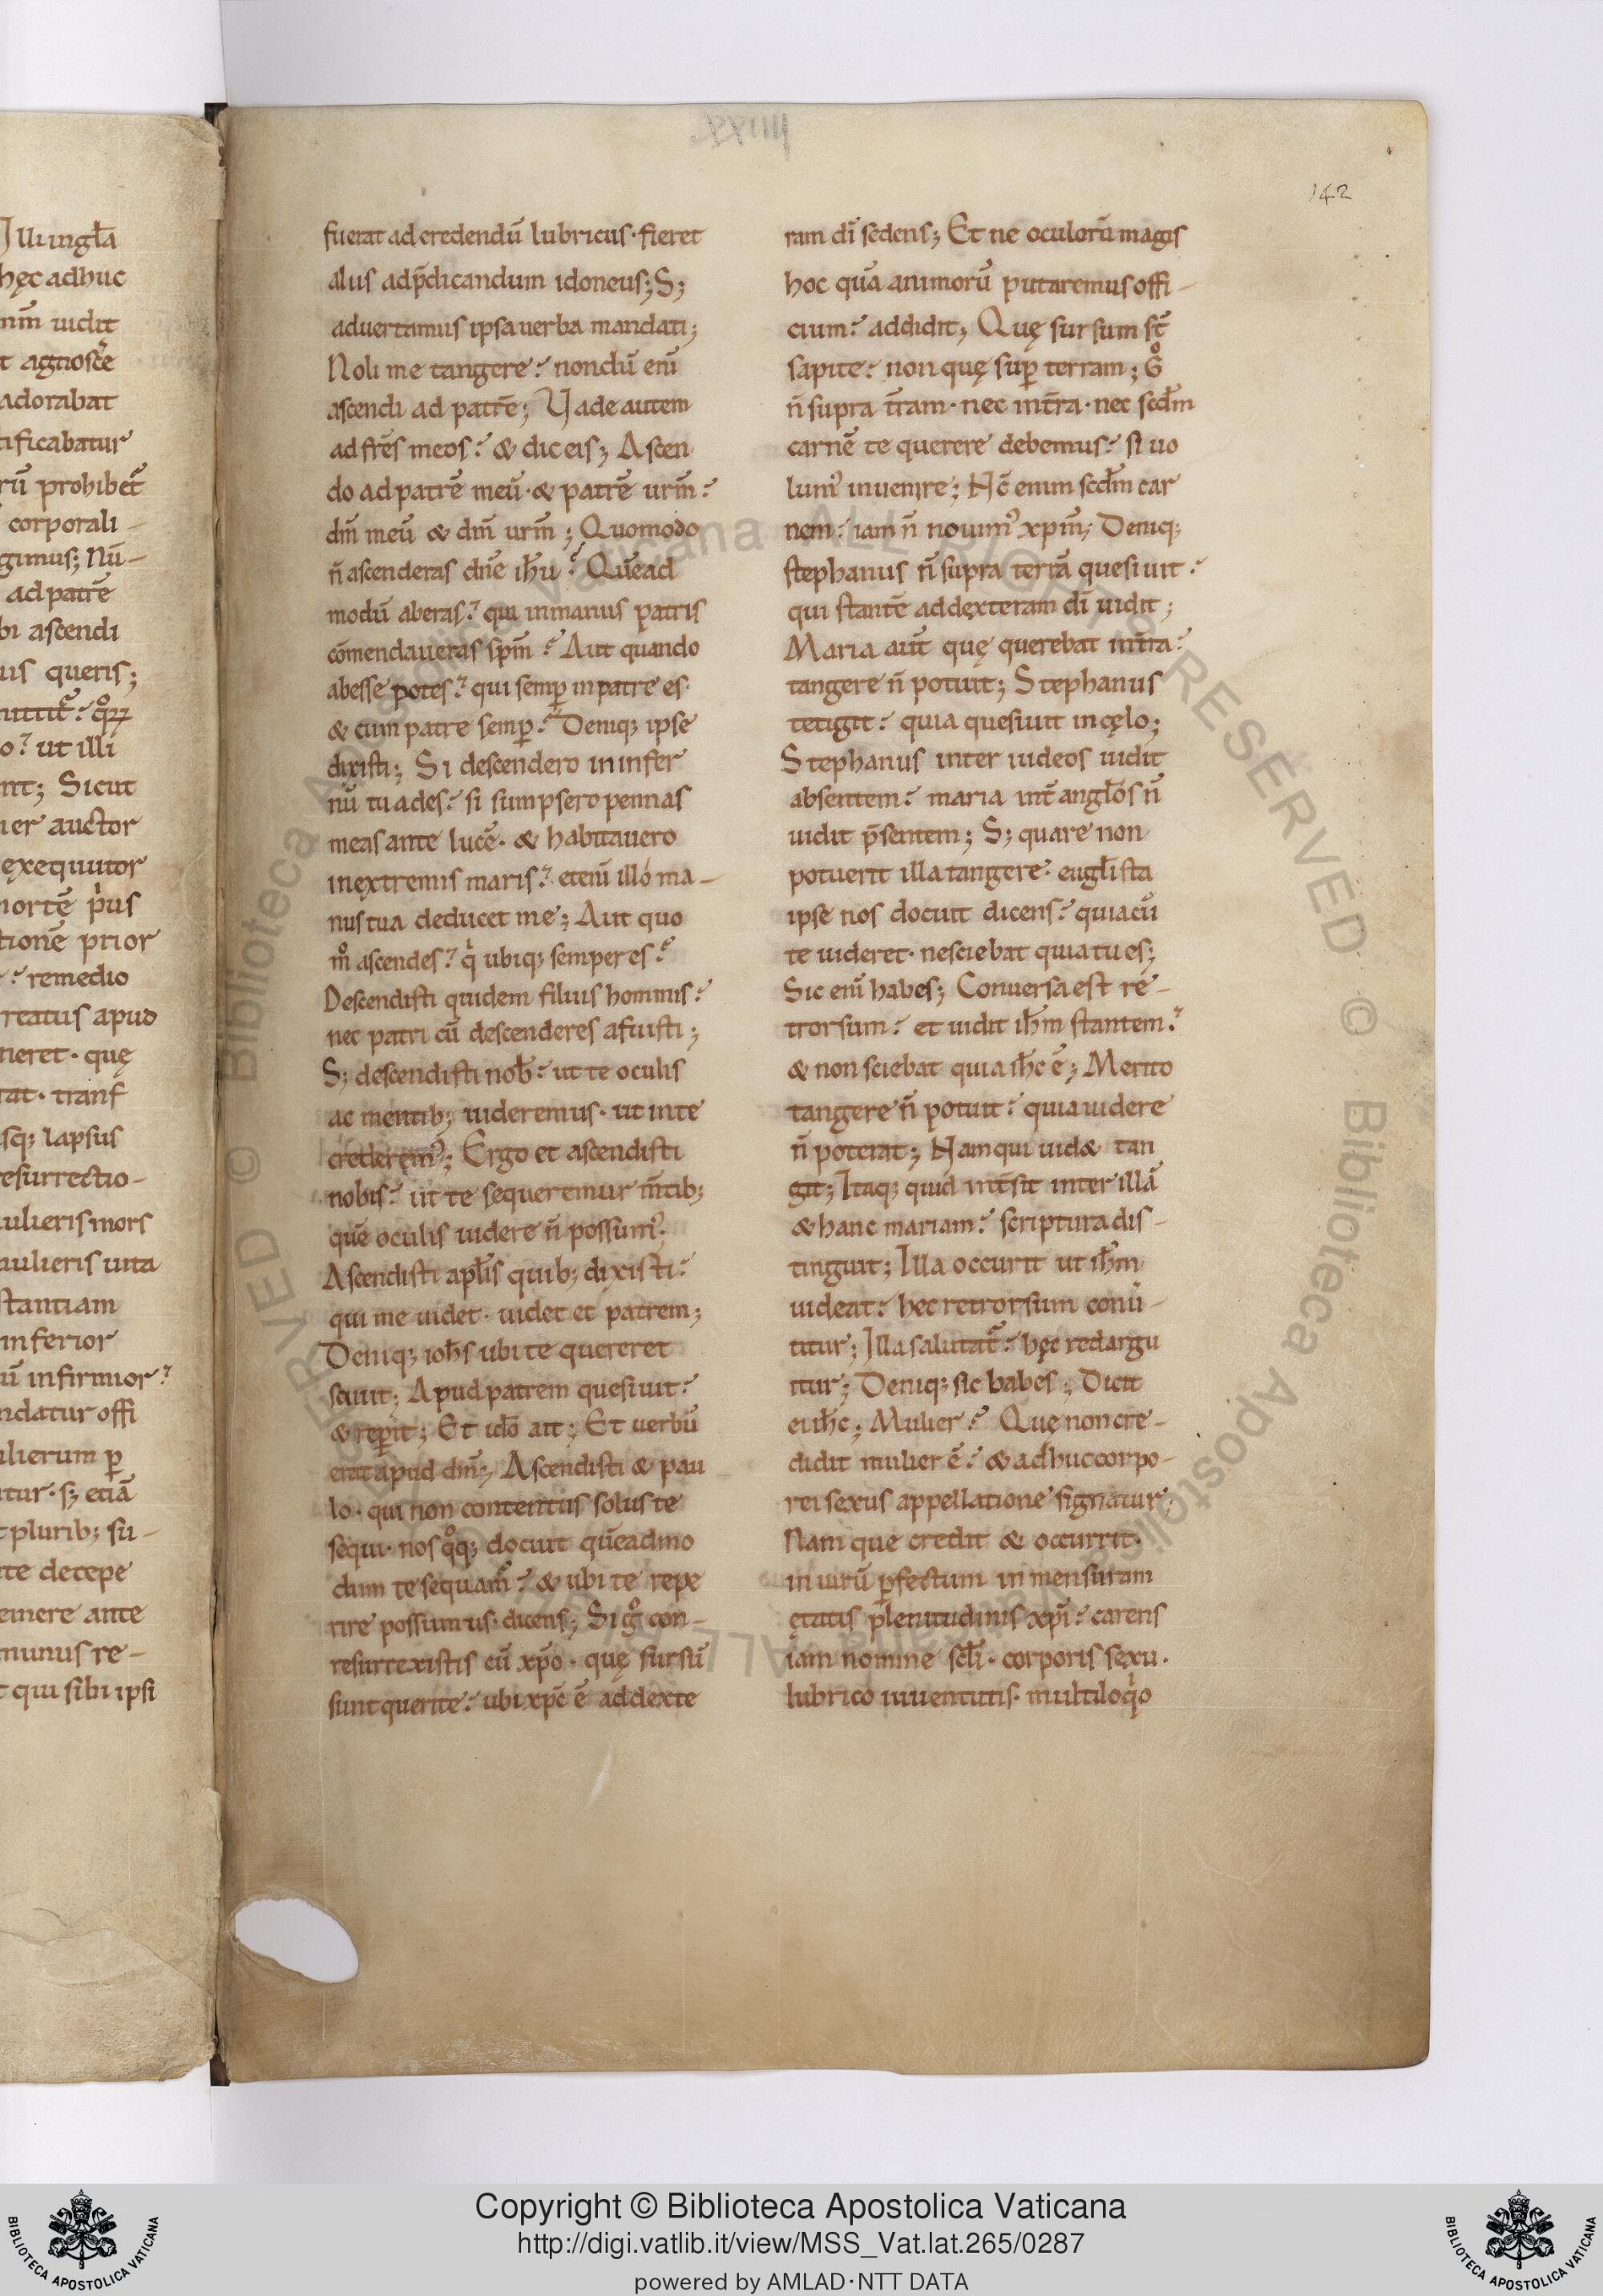 Illi ingl̄a
hęc adhuc
uidit
agnosc̄e
adorabat
tificabatur
rū prohibet̄
corporali-
gimus; Nū-
ad patrē
bi ascendi
uis queris;
o? ut illi
nt; Sicut
ier auctor
exequutor
mortē pius
tionē prior
remedio
rtatus apud
neret · quę
rat · transf
sq; lapsus
resurrectio-
ulieris mors
mulieris uita
stantiam
inferior
ū infirmior?
ndatur offi
ulierum p̄
itur · s; etiā
t plurib; su-
te decepe
emere ante
munus re-
t qui sibi ipsi
xxiiii
142
fuerat ad credendū lubricus · fieret
alius adp̄dicandum idoneus; S;
aduertamus ipsa uerba mandati;
Noli me tangere? nondū enī
ascendi ad patrē; Vade autem
ad frēs meos? & dic eis; Ascen
do ad patrē meū · & patrē urm̄?
dm̄ meū & dm̄ urm̄; Quomodo
n̄ ascenderas dn̄e ih̄u? Quēad
modū aberas? qui in manus patris
cōmendaueras sp̄m? Aut quando
abesse potes? qui semp̄ in patre es ·
& cum patre semp̄? Deniq; ipse
dixisti; Si descendero in infer
nū tu ades? si sumpsero pennas
meas ante lucē · & habitauero
in extremis maris? etenī illó ma-
nus tua deducet me; Aut quo
m̊ ascendes? q̇ ubiq; semper es?
Descendisti quidem filius hominis?
nec patri cū descenderes afuisti;
S; descendisti nob̄? ut te oculis
ac mentib; uideremus · ut in te
crederem᾿; Ergo et ascendisti
nobis? ut te sequeremur m̄tib;
quē oculis uidere n̄ possum᾿;
Ascendisti apl̄is quib; dixisti?
qui me uidet · uidet et patrem;
Deniq; ioh̄s ubi te quereret
sciuit; Apud patrem quesiuit?
& rep̄it; Et idō ait; Et uerbū
erat apud dm̄; Ascendisti & pau
lo · qui non contentus solus te
sequi · nos q̊q; docuit quēadmo
dum te sequam᾿? & ubi te repe
rire possumus · dicens; Si g̊ con-
resurrexistis cū xp̄o · quę sursū
sunt querite? ubi xp̄c ē ad dexte
ram dī sedens; Et ne oculorū magis
hoc quā animorū putaremus offi-
cium? addidit; Quę sursum st̄
sapite? non quę sup̄ terram; G̊
n̄ supra tr̄am · nec int̄ra · nec scd̄m
carnē te querere debemus? si uo
lum᾿ inuenire; Nc̄ enim scd̄m car
nem? iam n̄ nouim᾿ xpm̄; Deniq;
stephanus n̄ supra terrā quesiuit?
qui stantē ad dęxteram dī uidit;
Maria aut̄ quę querebat int̄ra?
tangere n̄ potuit; Stephanus
tetigit? quia quesiuit in cęlo;
Stephanus inter iudeos uidit
absentem? maria int̄ angl̄os n̄
uidit p̄sentem; S; quare non
potuerit illa tangere · eugl̄ista
ipse nos docuit dicens? quia cū
te uideret · nesciebat quia tu es;
Sic enī habes; Conuersa est re-
trorsum? et uidit ih̄m stantem?
& non sciebat quia ih̄c ē; Merito
tangere n̄ potuit? quia uidere
n̄ poterat; Nam qui uid& tan
git; Itaq; quid int̄sit inter illā
& hanc mariam? scriptura dis-
tinguit; Illa occurit ut ih̄m
uideat? hec retrorsum conū-
titur; Illa salutat̄? hęc redargu
itur; Deniq; sic habes; Dicit
ei ih̄c; Mulier? Quę non cre-
didit mulier ē? & adhuc corpo-
rei sexus appellatione signatur;
Nam que credit & occurrit ·
in uirū p̄fectum in mensuram
ętatis plenitudinis xp̄i? carens
iam nomine scl̄i · corporis sexu ·
lubrico iuuentutis · multiloq̇o
Copyright © Biblioteca Apostolica Vaticana
http://digi.vatlib.it/view/MSS_Vat.lat.265/0287
powered by AMLAD·NTT DATA
BIBLIOTECA APOSTOLICA VATICANA
BIBLIOTECA APOSTOLICA VATICANA
© Biblioteca Apostolica Vaticana ALL RIGHTS RESERVED
© Biblioteca Apostolica Vaticana ALL RIGHTS RESERVED